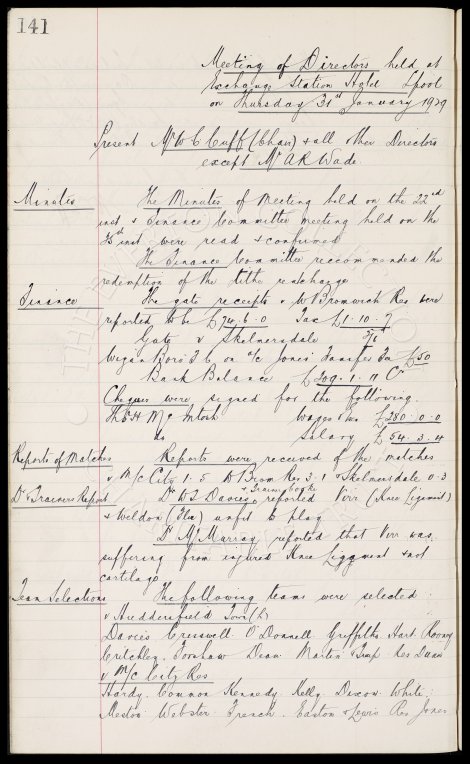 141
Meeting of Directors held at
Exchange Station Hotel L'pool
on Thursday 31st January 1929
Present Mr W C Cuff (Chair) & all other Directors
except Mr A R Wade
Minutes The Minutes of Meeting held on the 22nd
inst & Finance Committee meeting held on the
inst were read & confirmed
The Finance Committee recommended the
redemption of the tithe rentcharge
Finance The gate receipts v W Bromwich Res were
reported to be £74.6.0 Tax £1.10.7
Gate v Skelmersdale 5/6
Wigan Boro F C on a/c Jones' Transfer Fee £50
Bank Balance £209.1.11 Cr
Cheques were signed for the following
Th. H. McIntosh Wages &c £280.0.0
do Salary £54.3.4
Reports of Matches Reports were received of the matches
v M/c City 1.5 W Brom Res 3.1 & Skelmersdale 0.3
Dr & Trainers Report Dr W S Davies & Trainer Cooke reported Kerr (Knee ligament)
& Weldon (Flu) unfit to play
Dr McMurray reported that Kerr was
suffering from injured Knee Liggment & not
cartilage
Team Selections The following teams were selected:
v Huddersfield Town (L)
Davies Cresswell O'Donnell Griffiths Hart Rooney
Critchley Forshaw Dean Martin & Troup Res Dixon
v M/c City Res
Hardy. Common Kennedy Kelly Dixon White.
Meston Webster French. Easton & Lewis Res Jones